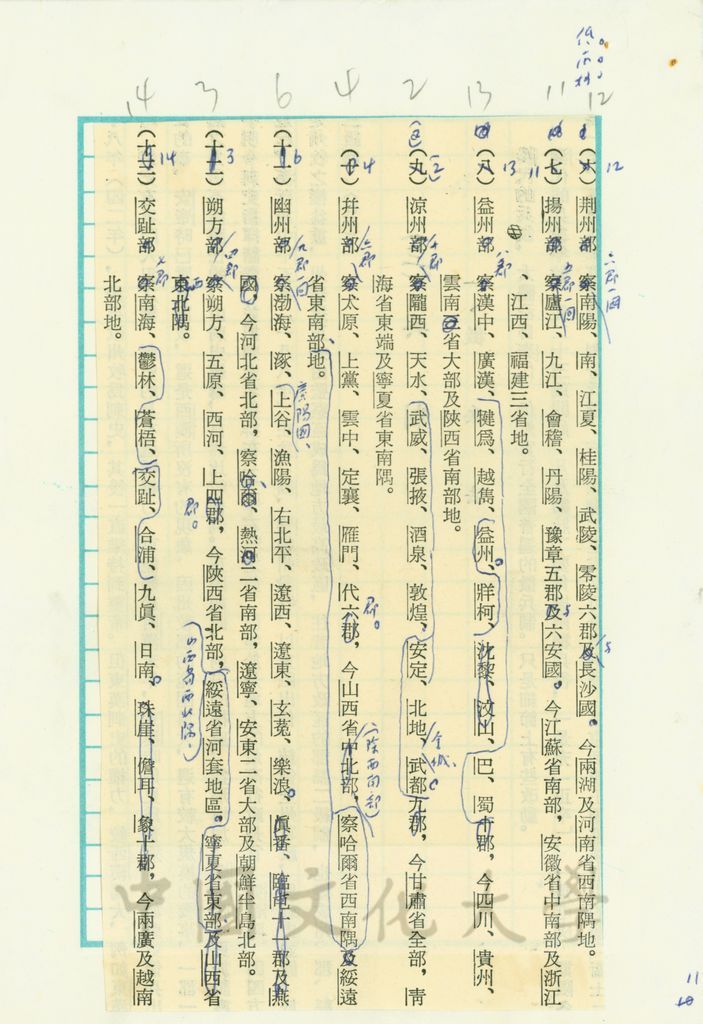 12 11 13 2 4 6 3 14
(六) 荆州部 察南陽、南、江夏、桂陽、武陵、零陵六郡及長沙國。今兩湖及河南省西南隅地。
12
六郡一國
(七) 揚州部 察廬江、九江、會稽、丹陽、豫章五郡及六安國。今江蘇省南部，安徽省中南部及浙江
11
五郡一國
、江西、福建三省地。
(八) 益州部 察漢中、廣漢、犍爲、越雋、益州、牂柯、沈黎、汶山、巴、蜀十郡，今四川、貴州、
13
八郡
雲南三省大部及陝西省南部地。
(九) 涼州部 察隴西、天水、武威、張掖、酒泉、敦煌、安定、北地、武都九郡，今甘肅省全部，靑
二
十郡
金城、
海省東端及寧夏省東南隅。
(十) 幷州部 察太原、上黨、雲中、定襄、雁門、代六郡，今山西省中北部，察哈爾省西南隅及綏遠
4
六郡
郡。
省東南部地。
(十一) 幽州部 察渤海、涿、上谷、漁陽、右北平、遼西、遼東、玄菟、樂浪、眞番、臨屯十一郡及燕
6
九郡一國
廣陽國、
國，今河北省北部，察哈爾、熱河二省南部，遼寧、安東二省大部及朝鮮半島北部。
(十二) 朔方部 察朔方、五原、西河、上四郡，今陝西省北部，綏遠省河套地區。寧夏省東部及山西省
3
四郡
郡。
山西省西北隅，
東北隅。
西
(十三) 交趾部 察南海、鬱林、蒼梧、交趾、合浦、九眞、日南、珠崖、儋耳、象十郡，今兩廣及越南
14
七郡
北部地。
中國文化大學
11